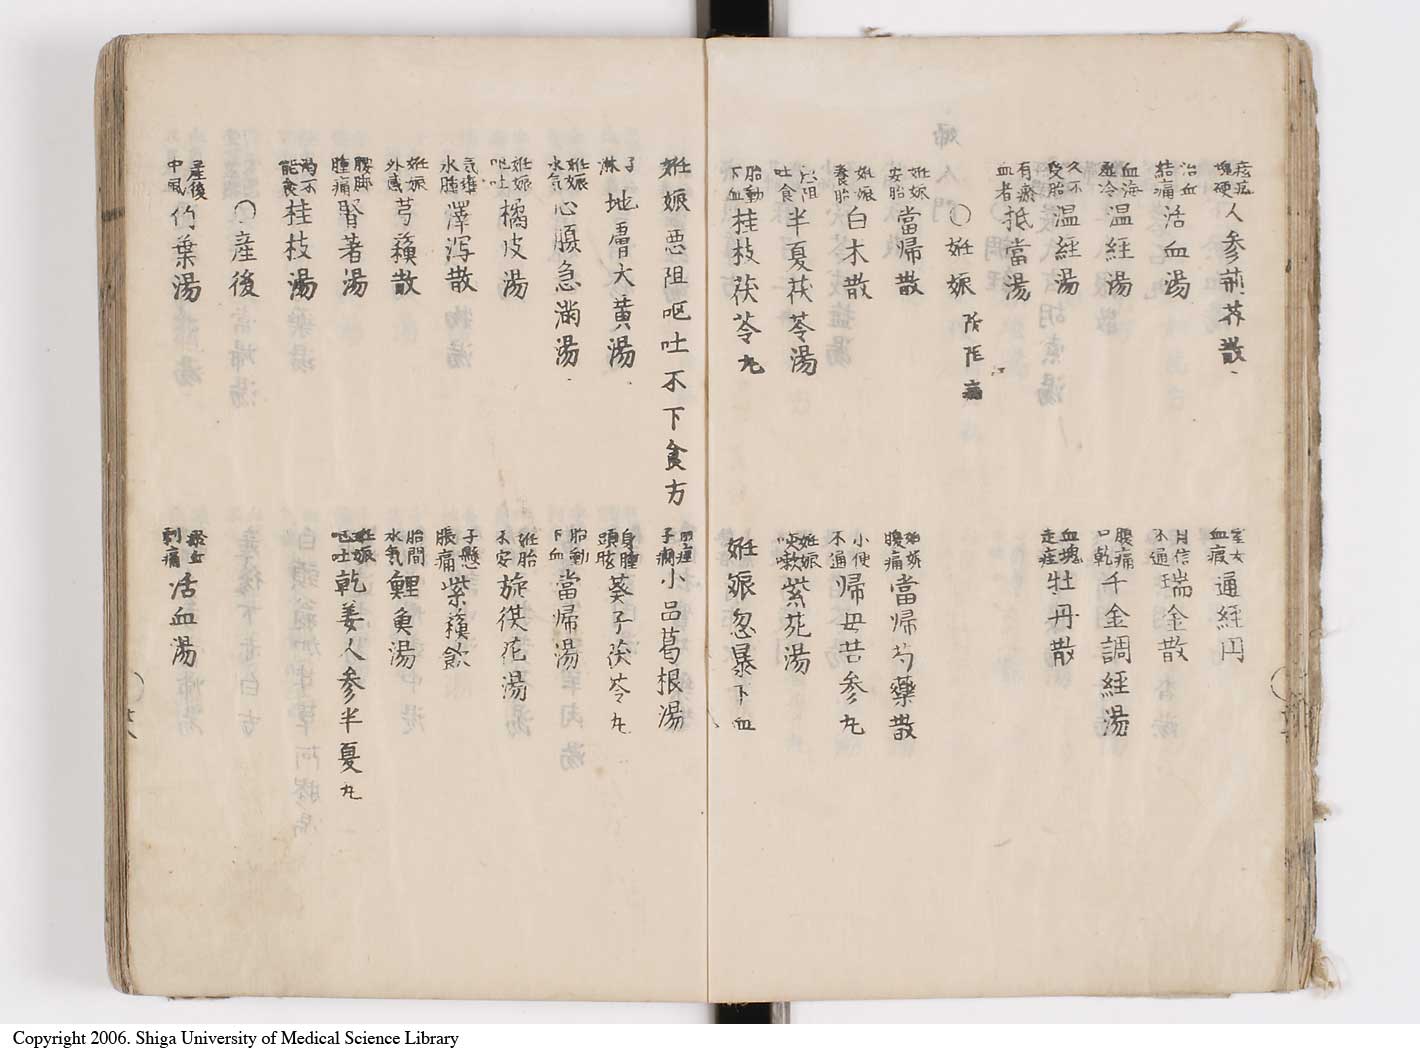 塊硬 人参荊芥散
血瘕 通経円
治血結痛 活血湯
月信不通 瑞金散
血海 温経湯
腰痛口乾 千金調経湯
久不受胎 温経湯
血塊走疰 牡丹散
有瘀血者 抵當湯
○妊娠
妊娠安胎 當帰散
妊娠腹痛 當帰芍藥散
妊娠養胎 白朮散
小便不通 帰母苦参丸
悪阻吐食 半夏茯苓湯
妊娠咳嗽 紫菀湯
胎動下血 桂枝茯苓丸
妊娠忽暴下血
妊娠悪阻呕吐不下食方
子癇 小品葛根湯
子淋 地膚大黄湯
身腫頭眩 葵子茯苓丸
妊娠水気 心腹急満湯
胎動下血 當帰湯
妊娠呕吐 橘皮湯
妊胎不安 旋覆花湯
妊娠気壅水腫 澤泻散
子懸脹痛 紫蘓飲
妊娠外感 芎蘓散
胎間水気 鯉魚湯
腰脚腫痛 腎著湯
妊娠呕吐 乾姜人参半夏丸
為不能食 桂枝湯
○産後
産後中風 竹葉湯
瘀血刺痛 活血湯
Copyright 2006. Shiga University of Medical Science Library